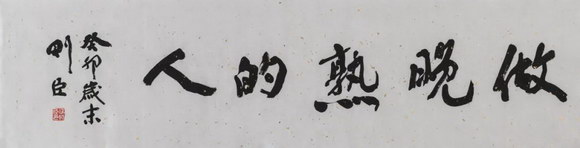 做晚熟的人
癸卯歲末
则臣